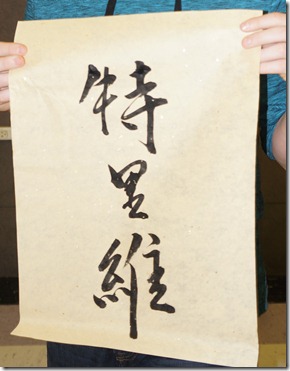 特里維